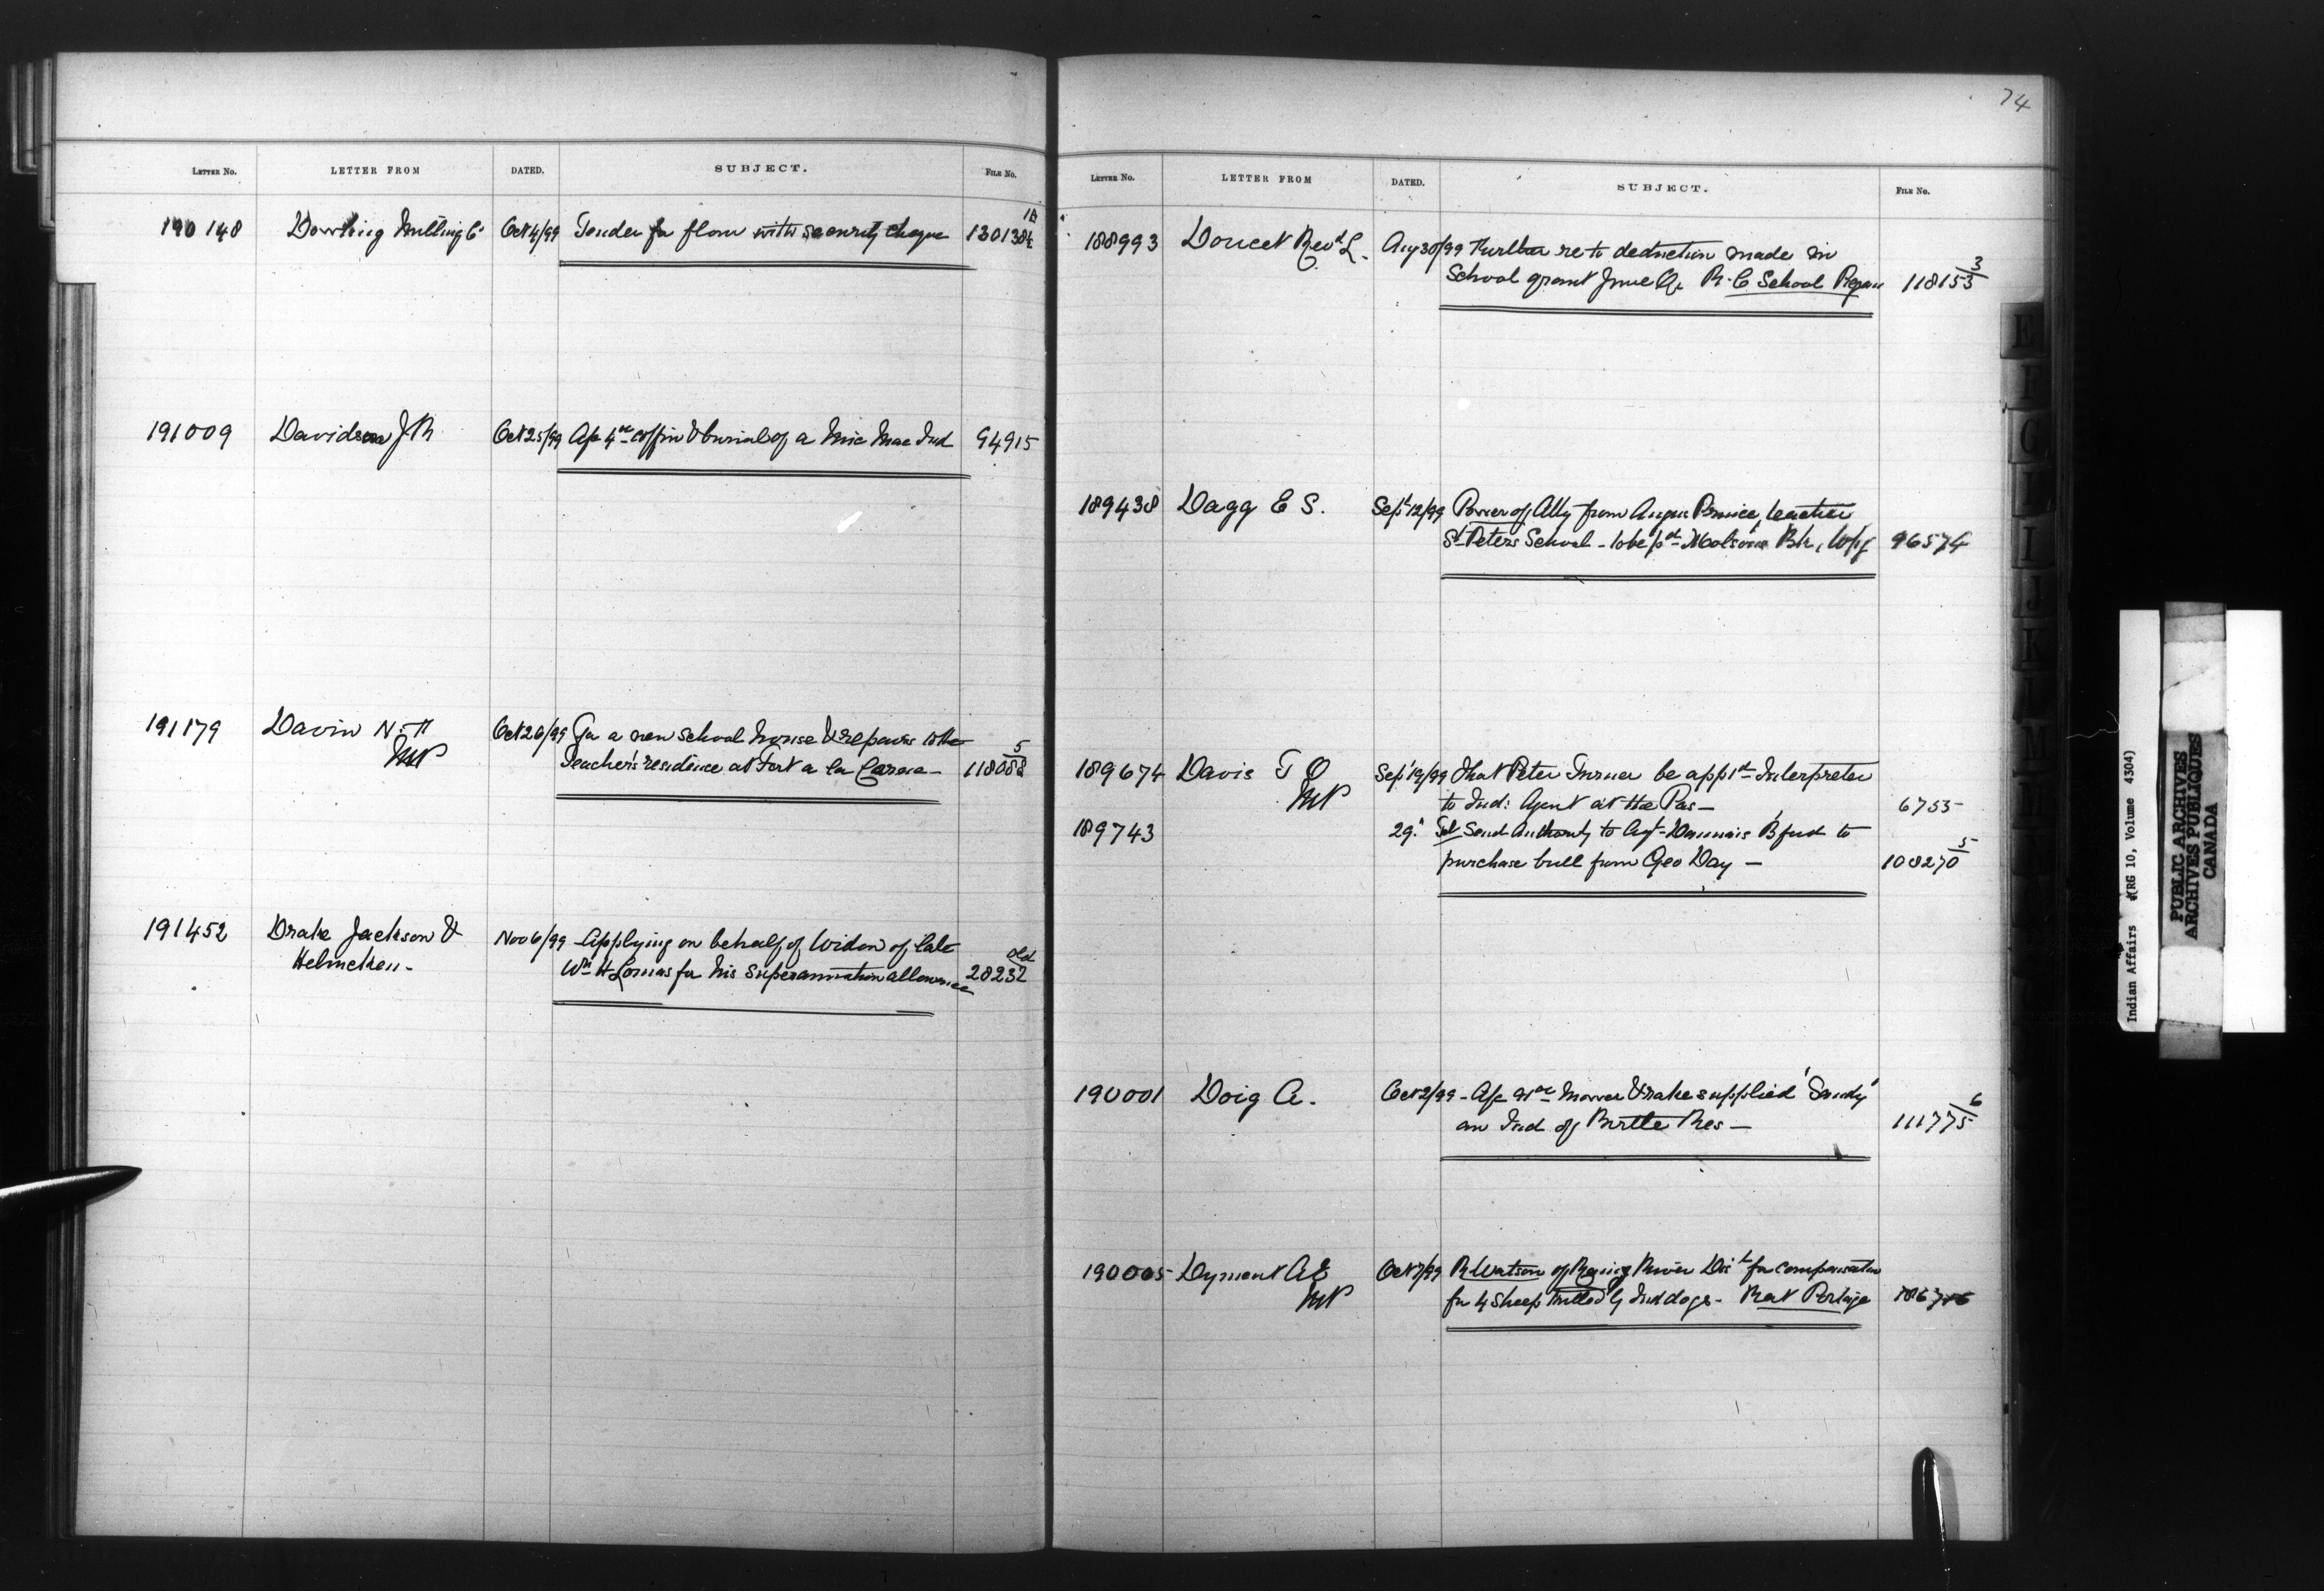 74
LETTER No. LETTER FROM DATED. SUBJECT. FILE No.
190148 Dowling Milling Co Oct 4/99 Tender for flour with security cheque 130138 1A
191009 Davidson J R Oct 25/99 A/c 4 00 coffin & burial of a Mic Mac Ind 94915
191179 Davin N. F. Oct 26/99 For a new school house & repairs to the
MP Teacher's residence at Fort a la Corne – 118088 5
191452 Drake Jackson & Nov 6/99 Applying on behalf of Widow of late
Helmcken – Wm H Lomas for his superannuation allowance 28232 old
LETTER No. LETTER FROM DATED. SUBJECT. FILE No.
188993 Doucet Revd L. Aug 30/99 Further re to deduction made in
School grant June Qr R. C. School 118153 3
189438 Dagg E S. Sept 12/99 Power of Atty from Angus Prince, teacher
St Peters School – to be pd Molsons Bk, Wpg 96574
189674 Davis T O Sept 19/99 That Peter Turner be apptd Interpreter
MP to Ind: Agent at the Pas – 6755
189743 29 " Tel Send Authority to Agt Daunais B'ford to
purchase bull from Geo Day – 108270 5
190001 Doig A. Oct 2/99 – A/c mower & rake supplied 'Sandy'
an Ind of Birtle Res – 111775 6
190005 Dyment A E Oct 3/99 R Watson of Rainy River Dist for compensation
MP for 4 sheep killed by Ind dogs – Rat Portage
Indian Affairs (RG 10, Volume 4304)
PUBLIC ARCHIVES
ARCHIVES PUBLIQUES
CANADA